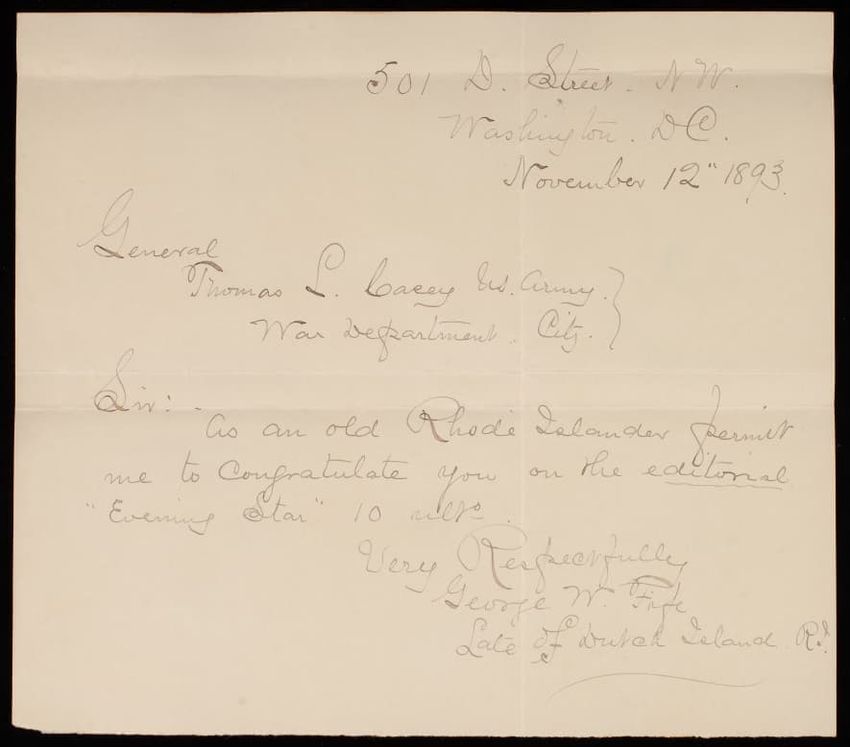 501 D. Street. N W.
Washington. D C.
November 12" 1893.
General
Thomas L. Casey Us. Army.
War Department. City.
Sir:
As an old Rhode Islander permit
me to Congratulate you on the editorial
"Evening Star" 10 ulto.
Very Respectfully
George W. Fife
Late of Dutch Island R.I.